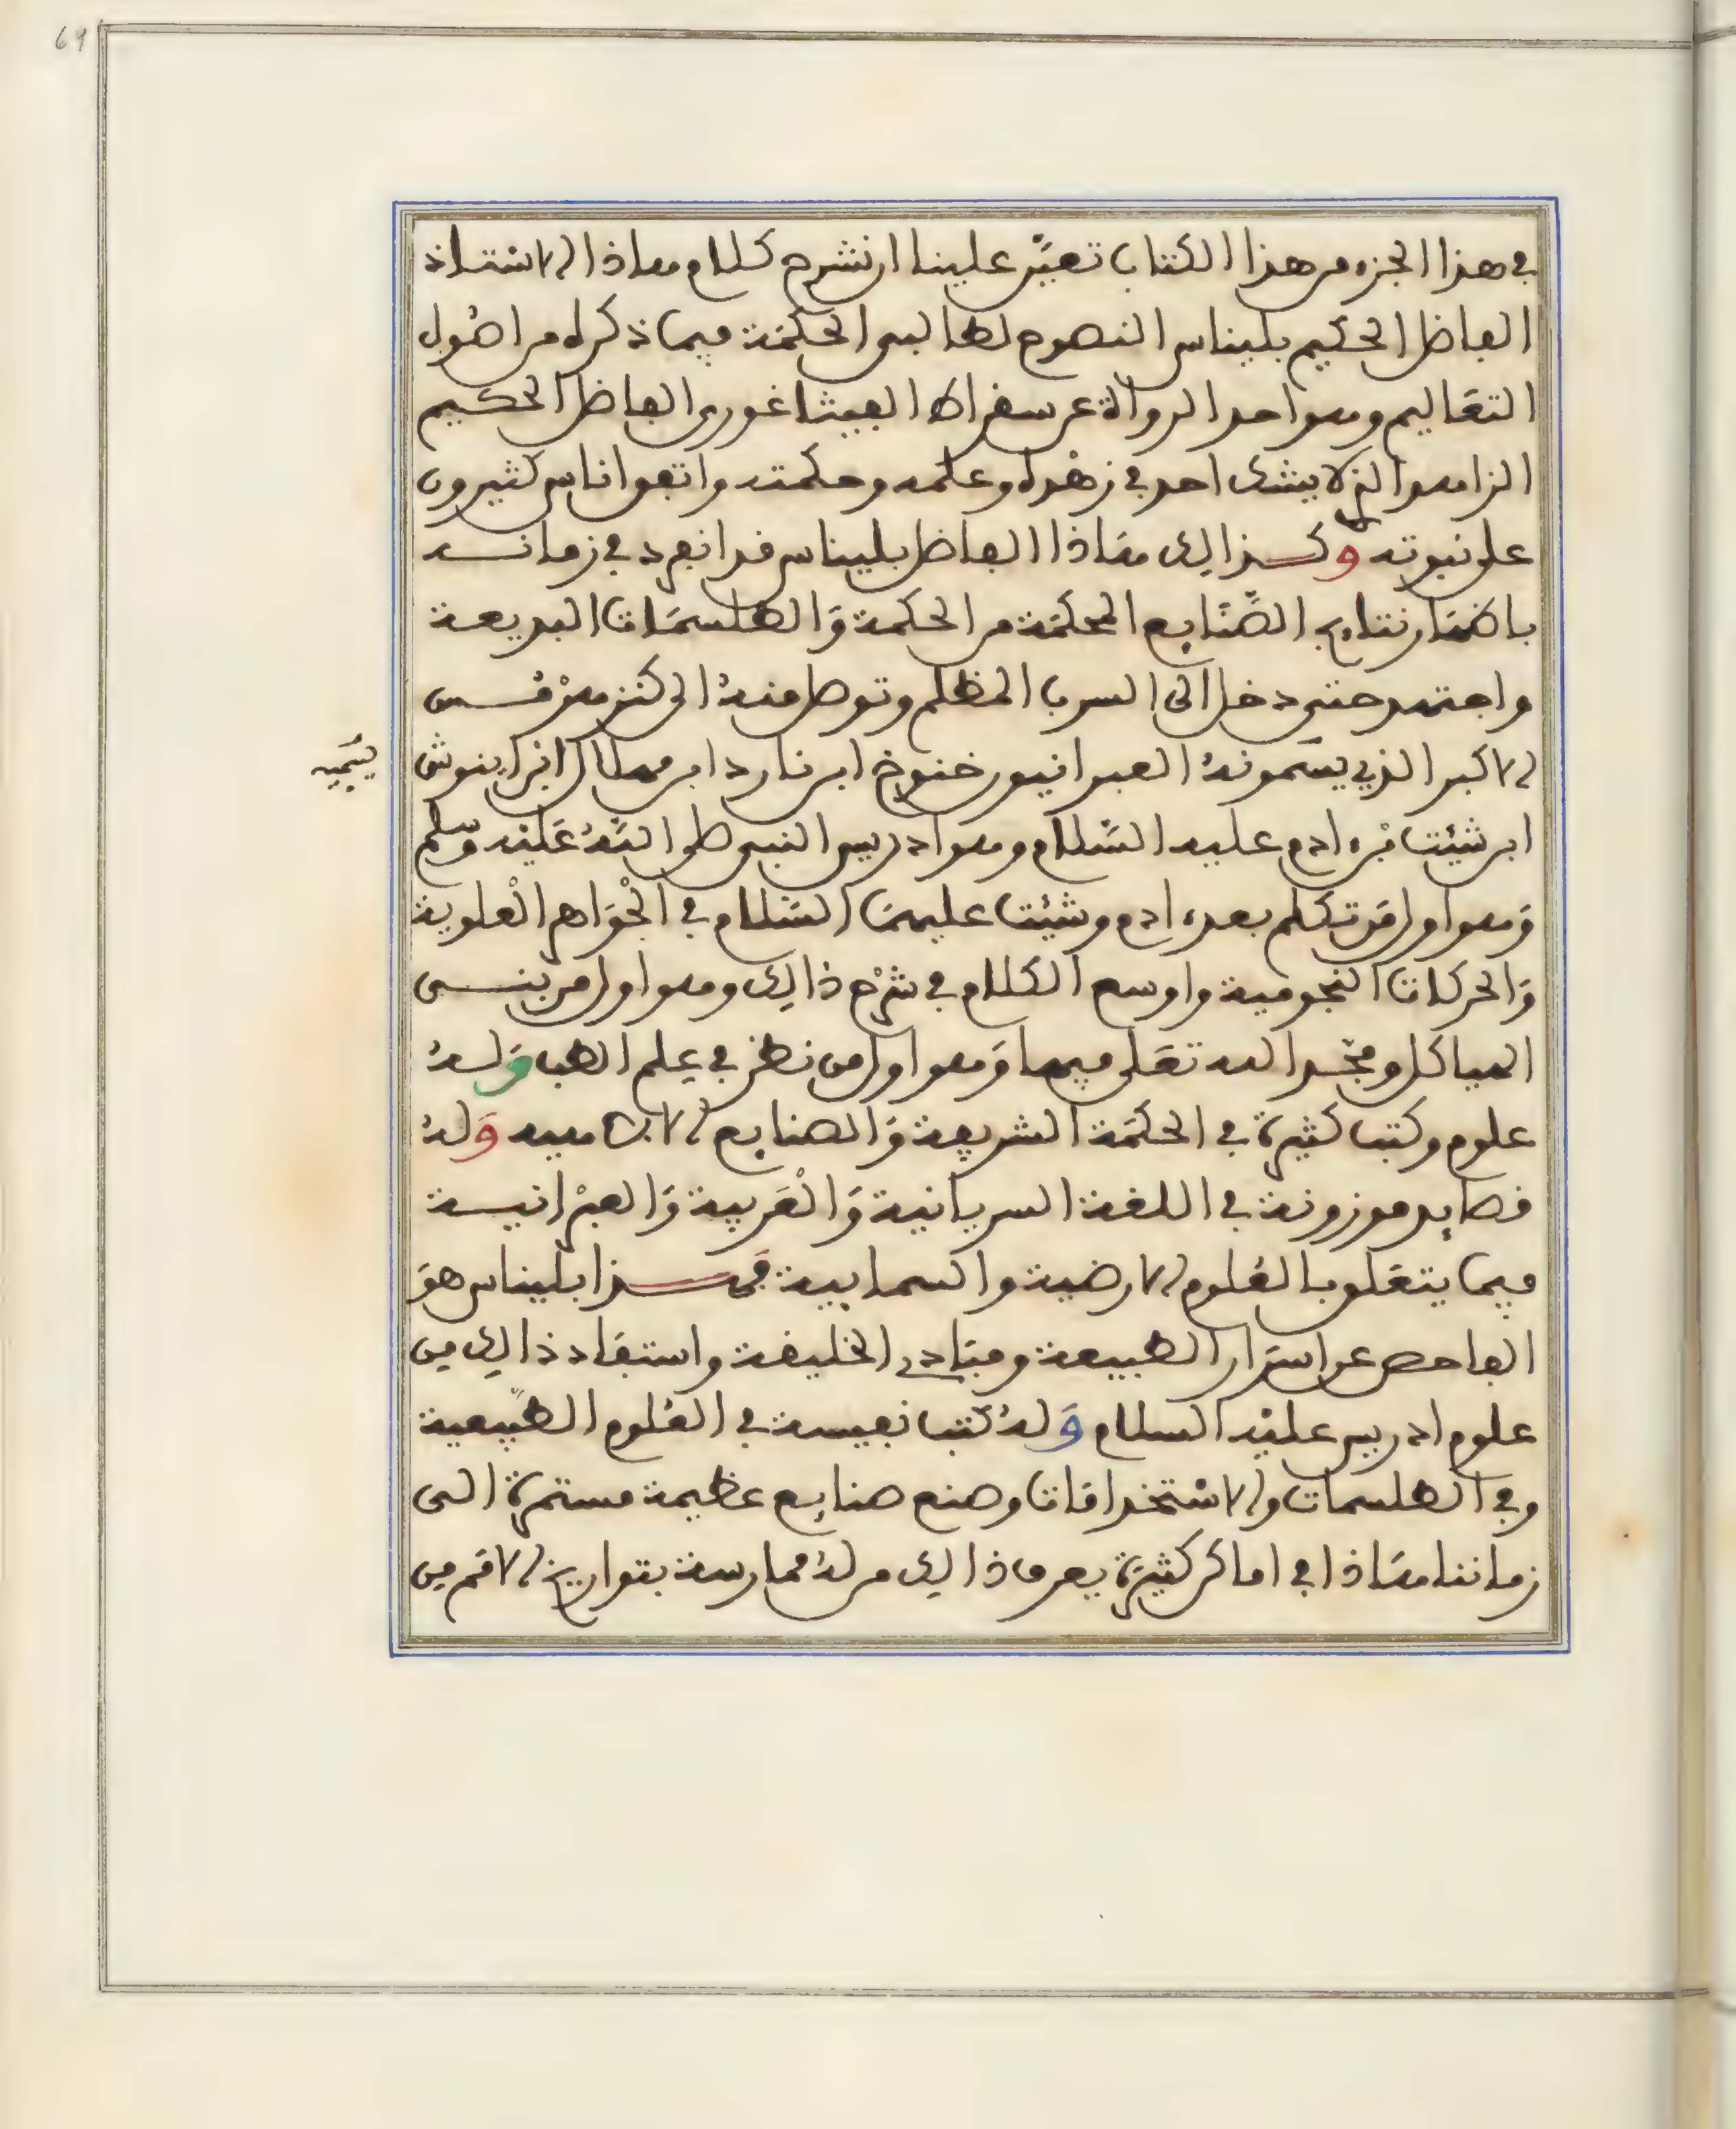 في هذا الجزء من هذا الكتاب تعيّن علينا ان نشرح كلام هاذا الاستاذ
الفاضل الحكيم بليناس النصوح لطالبي الحكمة فيما ذكره من اصُول
التعَاليم وهو احد الرواة عن سقراط الفيثاغوري الفاضل الحكيم
الزاهد الذي لا يشك احد في زهْده وعلمه وحكمته واتفق اناس كثيرون
على نبوته وكذالك هَاذا الفاضل بليناس قد انفرد في زمانه
باظهَار نتايج الصَّنَايع المحكمَة من الحكمة وَالطلسمَات البديعة
واجتهد حتى دخل الى السرب المظلم وتوصل منهُ الى كنز هرْمُس
الاكبر الذي يسَمونهُ العبرانيون خنوخ ابن يارد ابن مهلايل ابن اينوش
يسَميه
ابن شيئت بْن ءادم عليه السَّلام وهو ادريس النبي صلى اللهُ عَليْه وَسَلم
وَهو اول مَن تكلم بعد ءادم وشيْئت عليهمَا السَّلام في الْجوَاهر الْعلوية
وَالحركات النجومية واوسع الكلام في شرْح ذالك وهو اول من بنى
الهياكل ومجَّد الله تعَلى فيها وَهو اول من نظر في عِلم الطب وَلهُ
علوم وكتب كثيرة في الحكمَة الشريفة وَالصنايع الالاهيه وَلهُ
قصايد موزونة في اللغة السريانية وَالْعَربية وَالعبْرانية
فيما يتعَلق بالعُلوم الارضية والسمايية فهذا بليناس هوَ
الفاحص عن اسرَار الطبيعة ومبَادي الخليقة واستفَاد ذالك من
علوم ادريس عليْه السلام وَلهُ كتب نفيسة في العُلوم الطَّبيعية
وفي الطلسمات والاسْتخدامَات وصنع صنايع عظيمة مستمرة الى
زماننا هَاذا في اماكن كثيرَة يعرف ذالك من لهُ ممارسة بتواريخ الامَم من